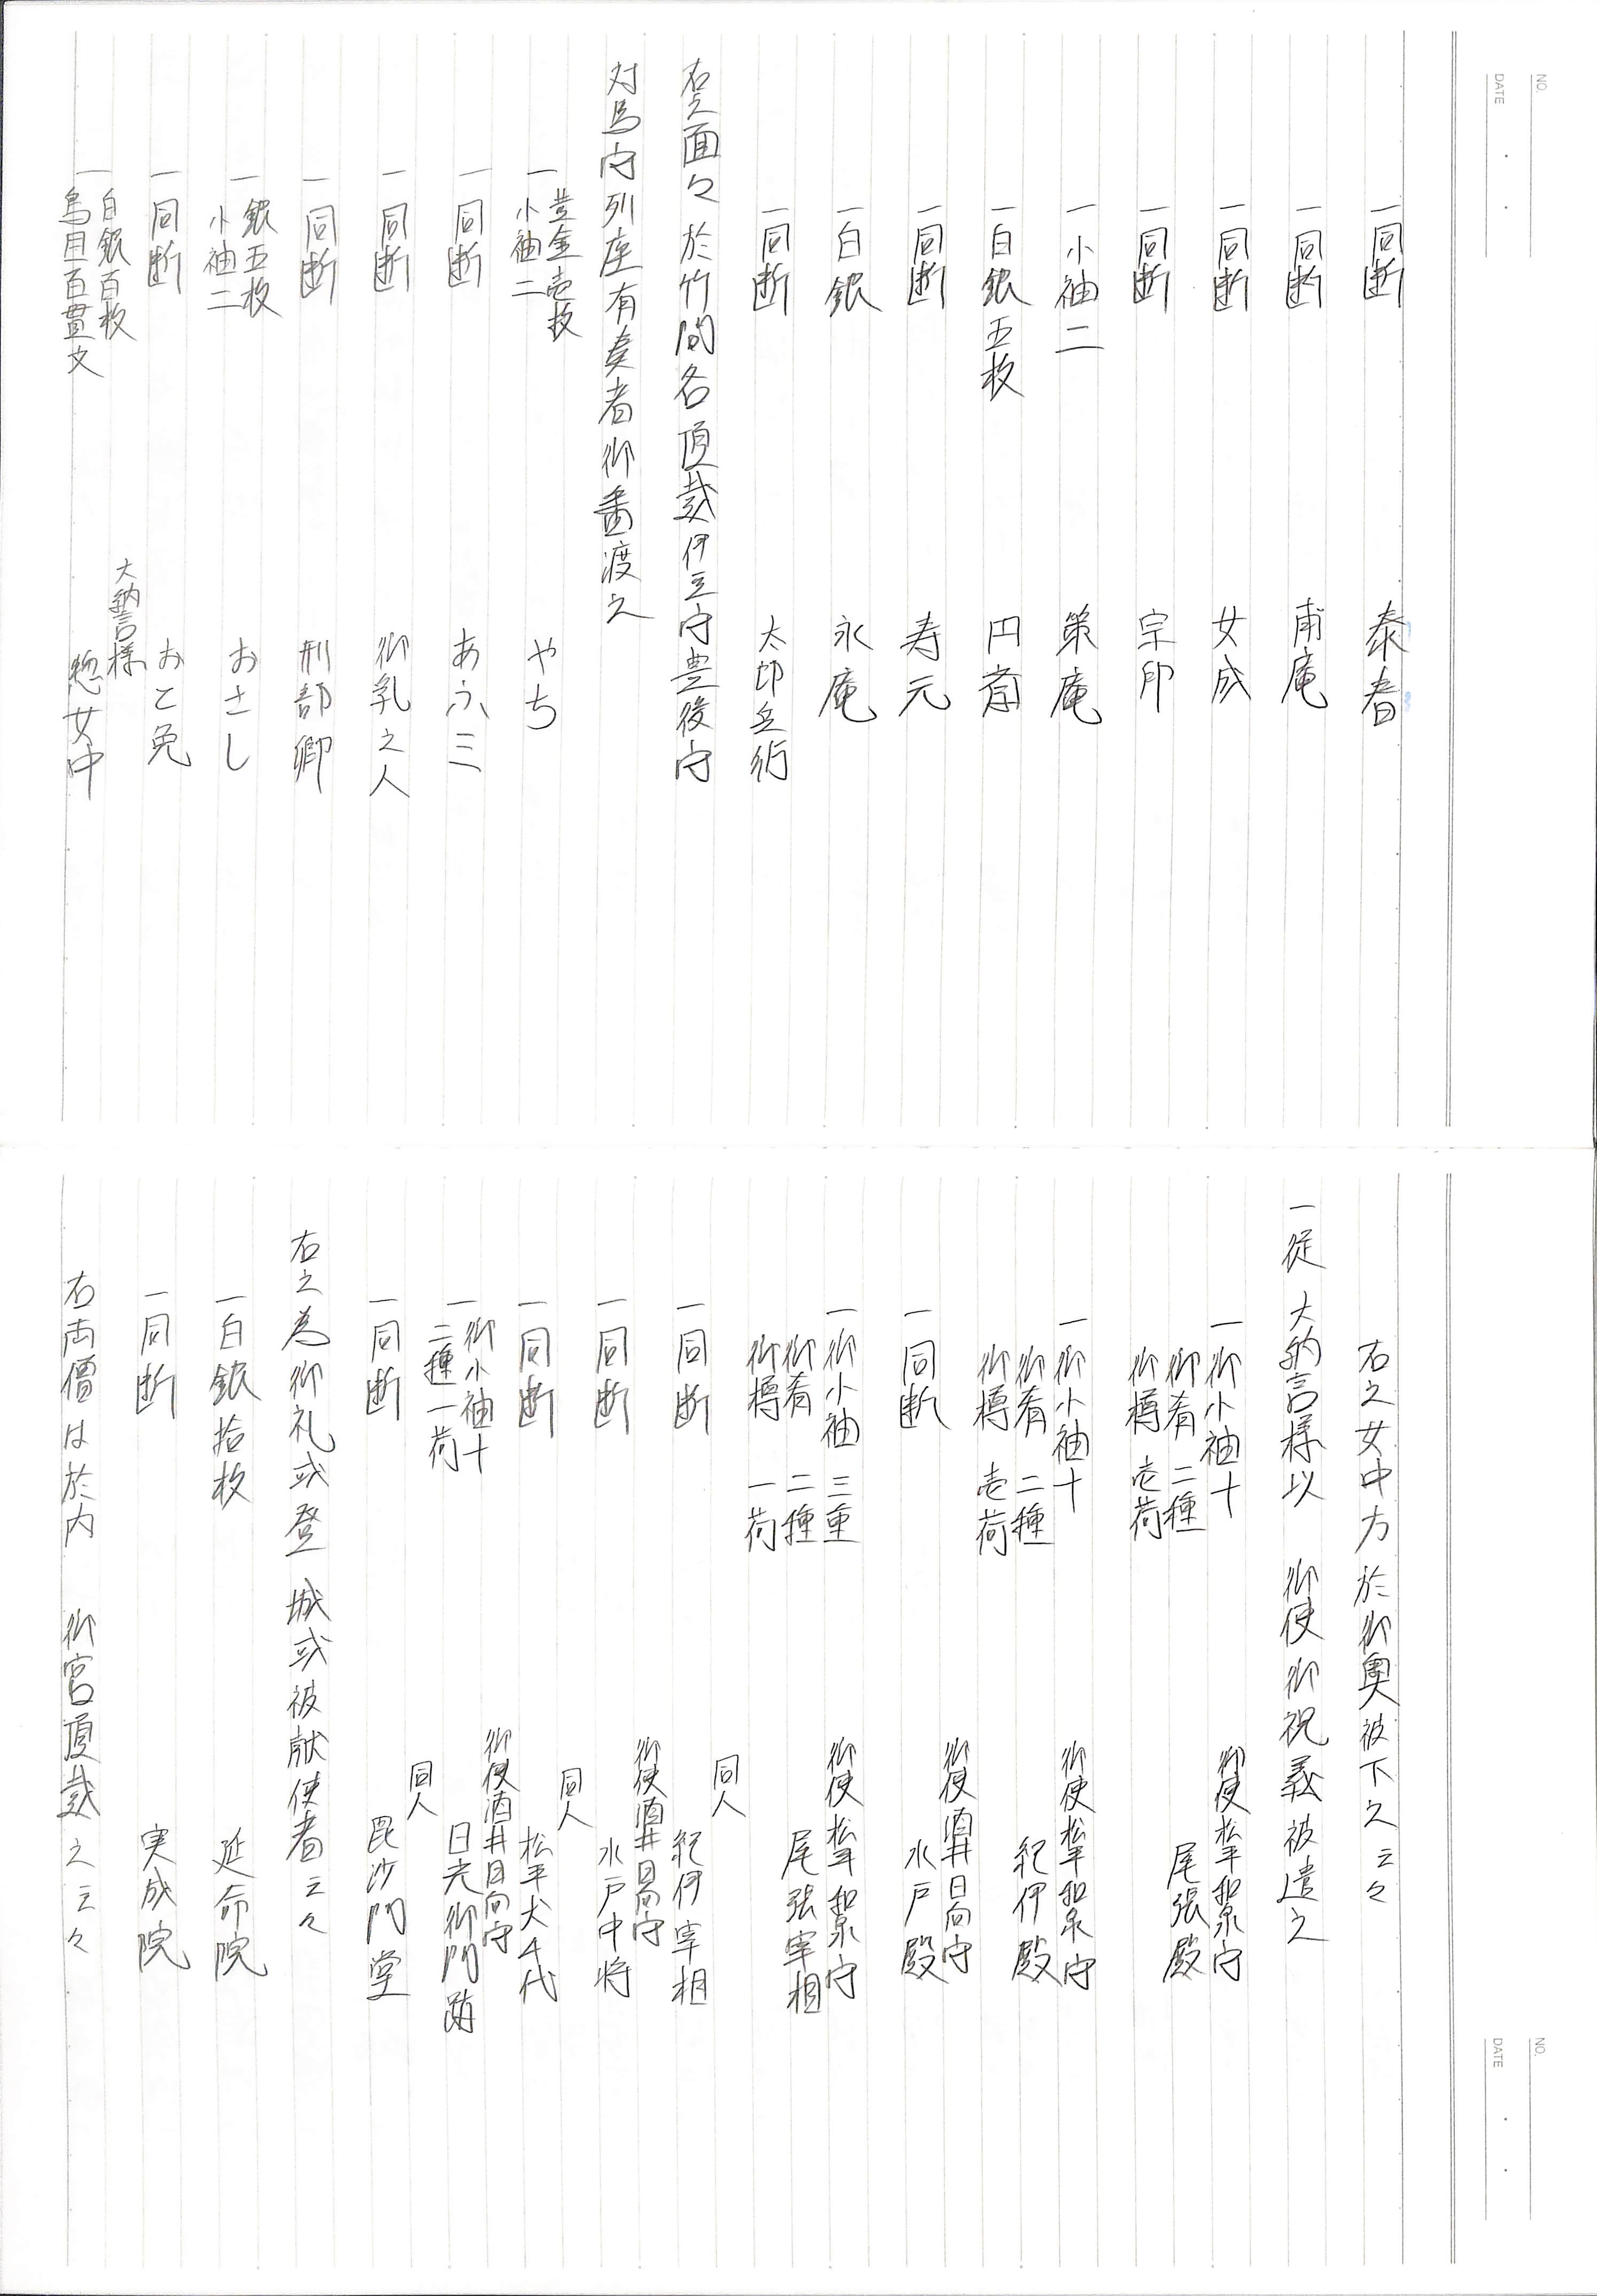 NO.
DATE
一同断 泰春
一同断 甫庵
一同断 女成
一同断 宗印
一小袖二 策庵
一白銀五枚 円斎
一同断 寿元
一白銀 永庵
一同断 太郎兵衛
右之面々於竹間各頂戴伊豆守豊後守
対馬守列座有奏者御番渡之
一黄金壱枚
小袖二 やち
一同断 あふミ
一同断 御乳之人
一同断 刑部卿
一銀五枚
小袖二 おさし
一同断 おこ免
大納言様
一白銀百枚
鳥目百貫文 惣女中
NO.
DATE
右之女中方於御奥被下之云々
一従 大納言様以 御使御祝義被遣之
御使松平和泉守
一御小袖十
御肴 二種
御樽 壱荷 尾張殿
御使松平和泉守
一御小袖十
御肴 二種
御樽 壱荷 紀伊殿
御使酒井日向守
一同断 水戸殿
御使松平和泉守
一御小袖 三重
御肴 二種
御樽 一荷 尾張宰相
同人
一同断 紀伊宰相
御使酒井日向守
一同断 水戸中将
同人
一同断 松平犬千代
御使酒井日向守
一御小袖十
二種一荷 日光御門跡
同人
一同断 毘沙門堂
右之為御礼或登 城或被献使者云々
一白銀拾枚 延命院
一同断 実成院
右両僧は於内 御宮頂戴之云々